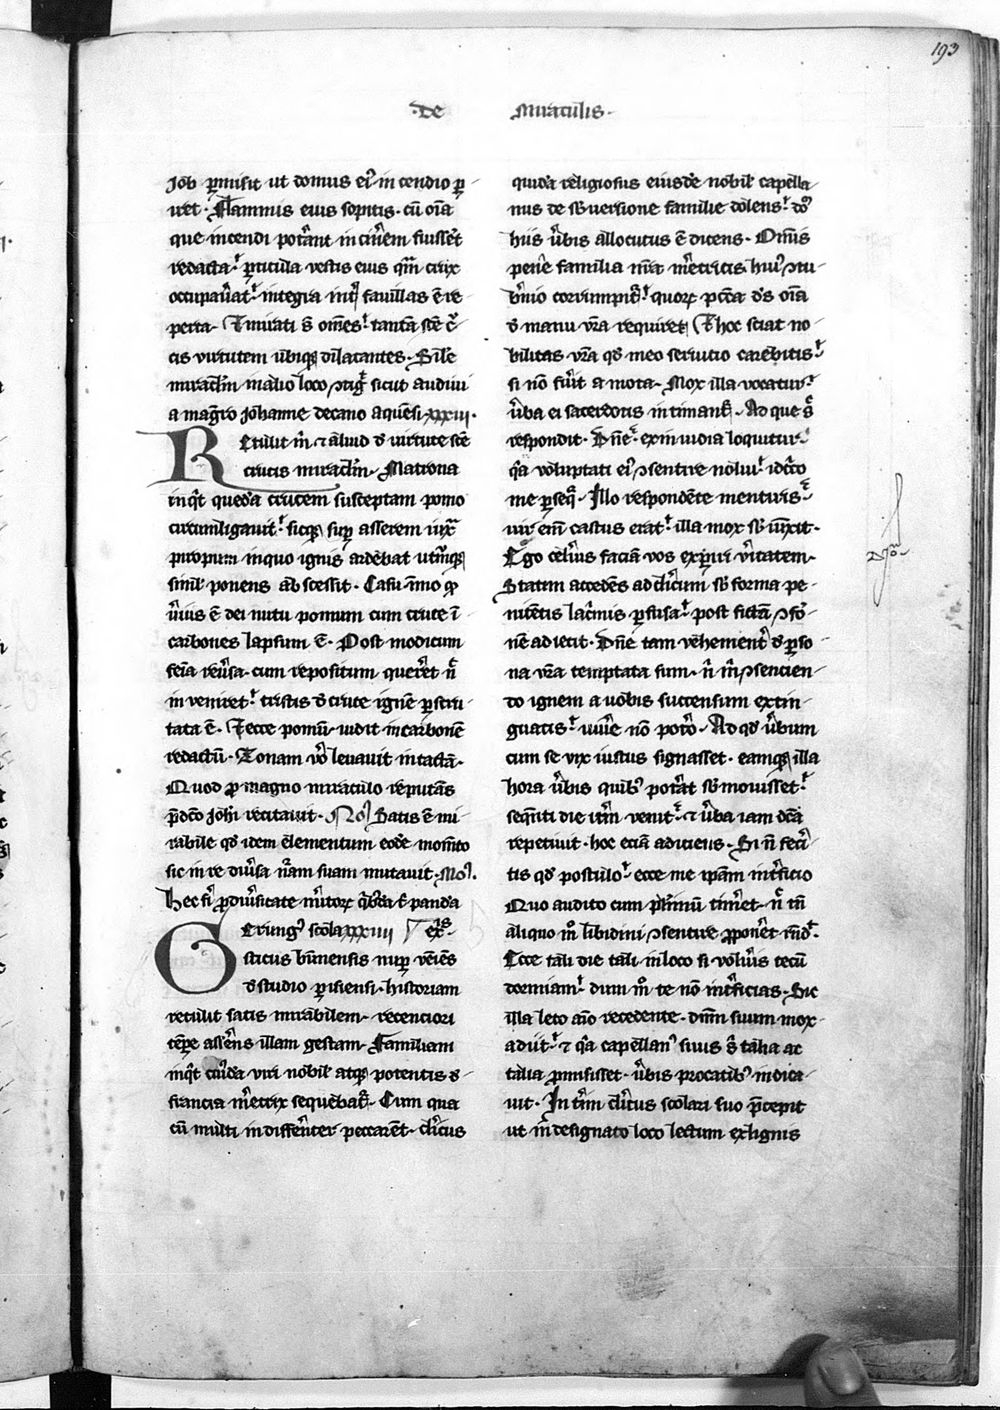 193
·De Miraculis·
Job ꝑmisit ut domus ei᷒ in cendio ꝑ
iret· Flammis eius sopitis· cū oīa
que incendi potͣant in cin̄em fuissēt
redacta· ꝑticula vestis eius qm̄ crux
occupau̾at· integra int̾ fauillas ē re
perta· ⁊ mirati s̄ om̄es· tantā sc̄e c̾
cis virtutem ubiqꝫ dilatantes· Sil̄e
miracl̄m in alio loco ↄtiḡ sicut audiui
a magr̄o Johanne decano aquēsi· xxxiii·
Retulit m̄ ⁊ aliud d̾ virtute sc̄e
crucis miracl̄m· Matrona
inq̄t queda crucem susceptam pomo
circumligauit· sicqꝫ suꝑ asserem iux̄
propriū inquo ignis ardebat utrūqꝫ
simil̾ ponens abscessit· Casu īmo qd̾
u̾ius ē dei nutu pomum cum cruce ī
carbones lapsum ē· Post modicum
feīa reu̾sa· cum repositum quer̾et n̄
in veniret· tristis d̾ cruce ignē ꝑscru
tata ē· ⁊ ecce pomū vidit in carbonē
redactū· Zonam u̾o leuauit intactā·
Quod ꝓ magno miraculo reputās
p̄dc̄o Joh̄i recitauit· No᷒ Satis ē mi
rabile qd̾ idem elementum eodē momēto
sic in re diu̾sa nāam suam mutauit· Mo᷒·
Hec s̄t ꝓ diu̾sitate m̄itoꝝ
Gerung᷒ scolaxxxiiii
sticus būnensis nuꝑ veīēs
d̾ studio ꝑisiensi· historiam
retulit satis mirabilem· recentiori
tēpe asser̄ns illam gestam· Familiam
inq̄t cui᷒da viri nobil̾ atqꝫ potentis d̾
francia m̄etrix sequebat᷒· Cum qua
cū multi indiffer̄nter peccarēt· cl̾icus
quida religiosus eiusdē nobil̾ capella
nus de sb̾uersione familie dolens· do᷒
hiis u̾bis allocutus ē dicens· Om̄is
pene familia nr̄a m̄etricis hui᷒ ↄtu
b̾nio corrumpit᷒· quoꝝ pc̄ca ds̄ oīa
d̾ manu vr̄a requiret ⁊ hoc sciat no
bilitas vr̄a qd̾ meo seruitio carebitis·
si nō fu̾it a mota· Mox illa vocatur·
u̾ba ei sacerdotis intimant᷒· Ad que s̄
respondit· Dn̄e· ex inuidia loquitur·
q̾a voluptati ei᷒ ↄsentire nolui· idc̄co
me ꝑseq̄· Illo respondēte mentiris·
uir em̄ castus erat· illa mox sb̾iūxit·
Ego celi᷒ius faciā vos expiri u̾itatem·
Statim accedēs ad cl̾icum sb̾ forma pe
nitētis lac̾mis ꝑfusa· post fictā ↄfes᷒
nē adiecit· Dn̄e tam vehement̾ d̾ ꝑso
na vr̄a temptata sum· n̄ m̄ ↄsencien
do ignem a uobis succensum extin
guatis· uiu̾e nō pot̾o· Ad qd̾ u̾bum
cum se vir iustus signasset· eamqꝫ illa
hora u̾bis quib᷒ pot̾at sb̾mouisset·
seq̄nti die it̾m venit· ⁊ u̾ba iam dc̄a
repetiuit· hoc eciā adiciens· Si n̄ fec̾i
tis qd̾ postulo· ecce me ip̄am int̾ficio
Quo audito cum pl̾imū tim̾et· n̄ tn̄
aliquo m̊ libidini ↄsentire ꝓpon̾et· rn̄d᷒·
Ecce tali die tali in loco si volu̾is tecū
dormiam· dum m̊ te nō int̾ficias· Sic
illa leto aīo recedente· dn̄m suum mox
adiit· ⁊ q̾a capellan᷒ suus s̄ talia ac
talia ꝓmisisset· u̾bis procatib᷒ indica
uit· Int̾im cl̾icus scolari suo p̄cepit
ut in designato loco lectum ex lignis